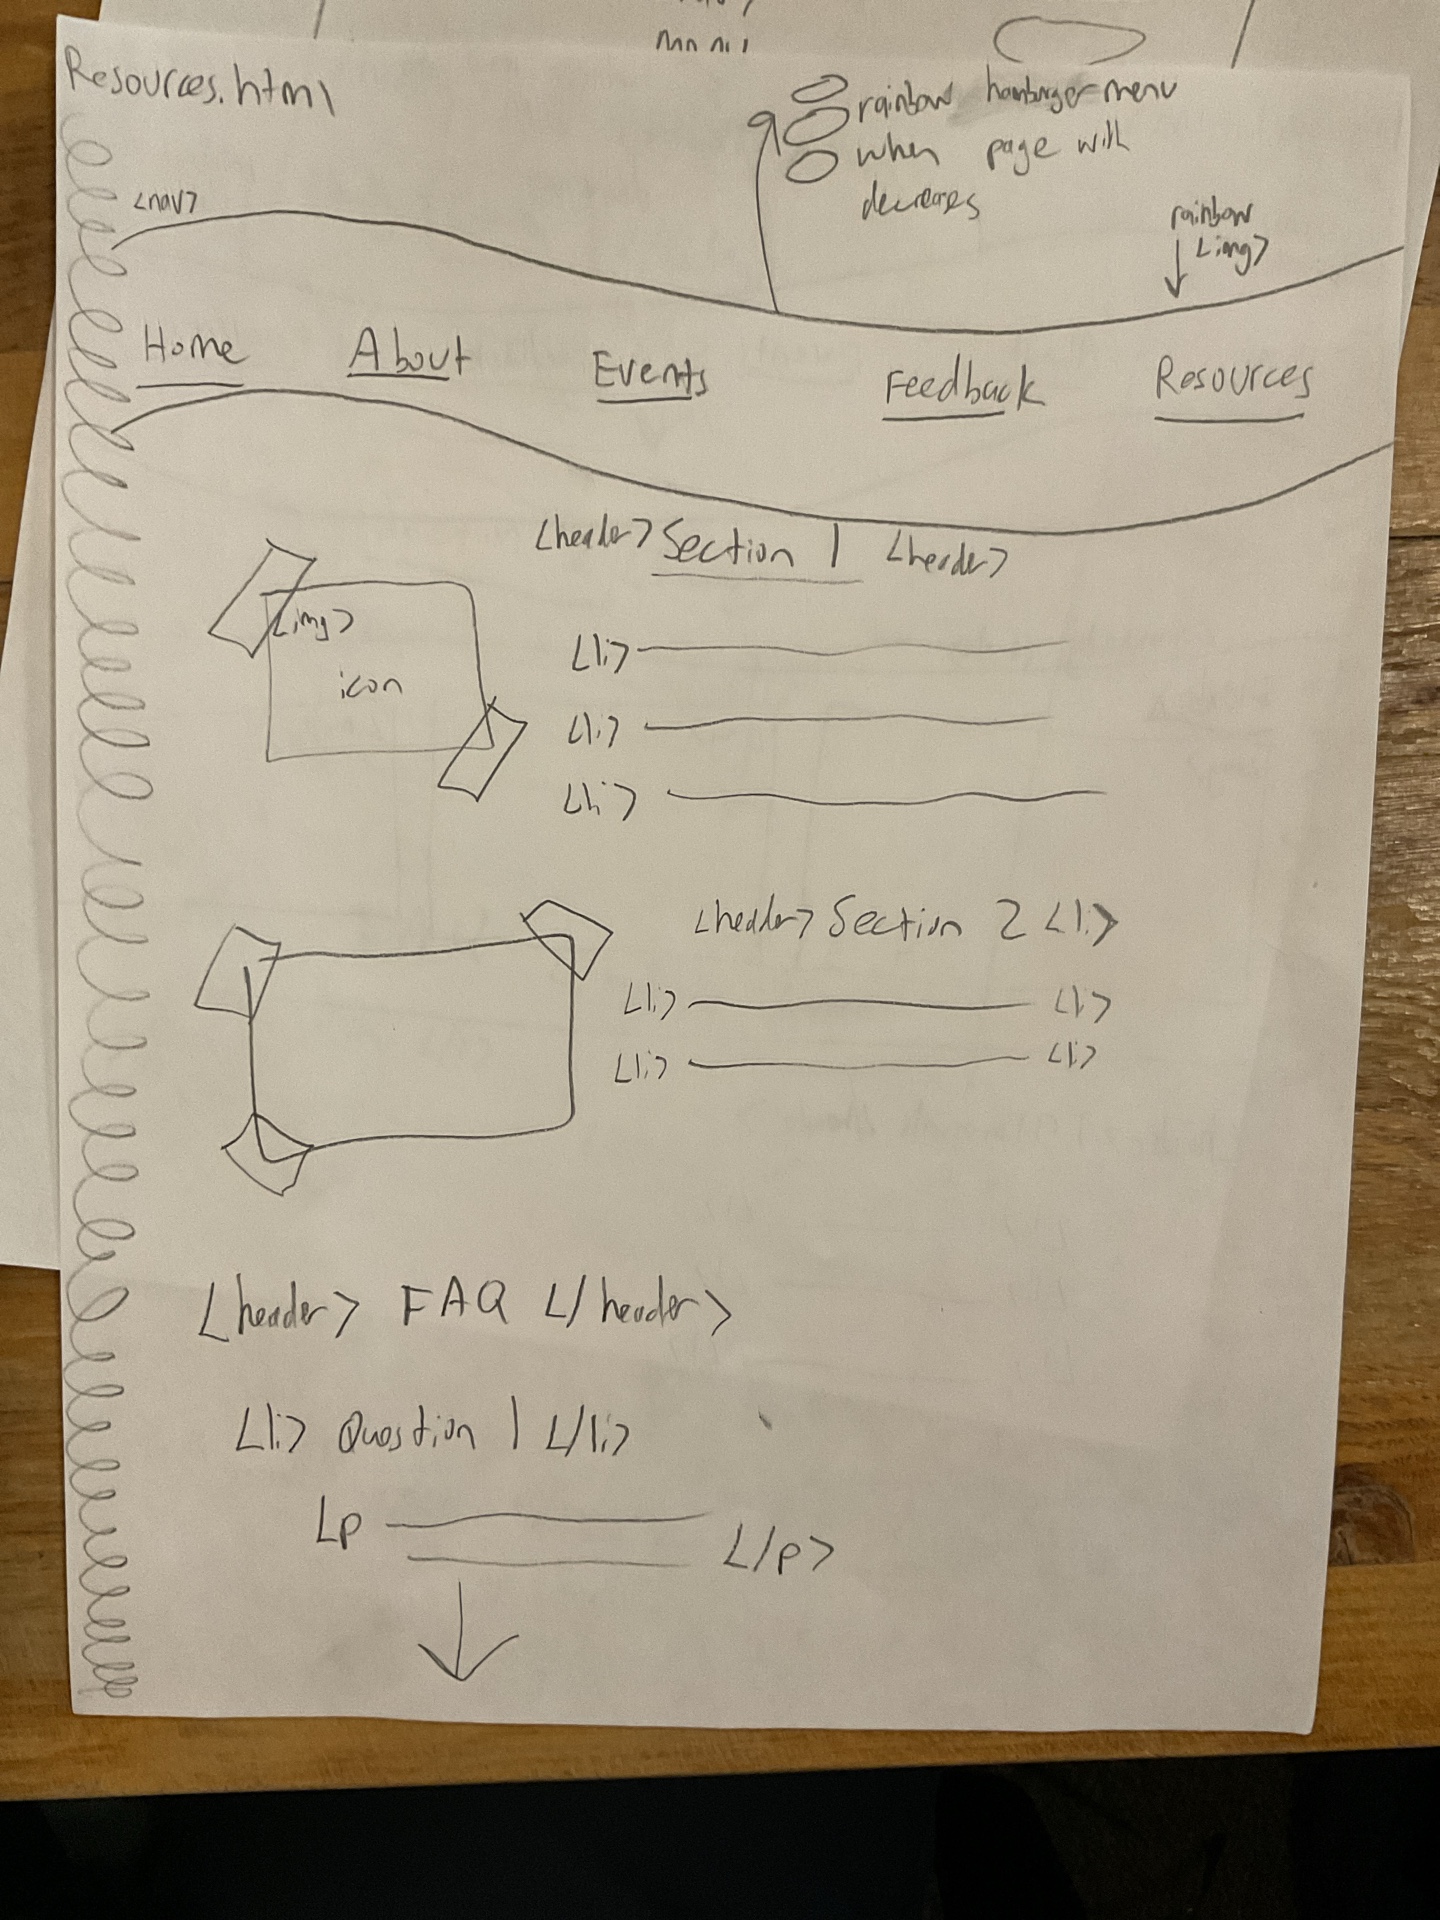 Resources.html
rainbow hamburger menu
when page with
decreases
<nav>
rainbow
<img>
Home About Events Feedback Resources
<header> Section 1 <header>
<img>
icon
<li>
<li>
<li>
<header> Section 2 <li>
<li> <li>
<li> <li>
<header> FAQ </header>
<li> Question 1 </li>
<p </p>